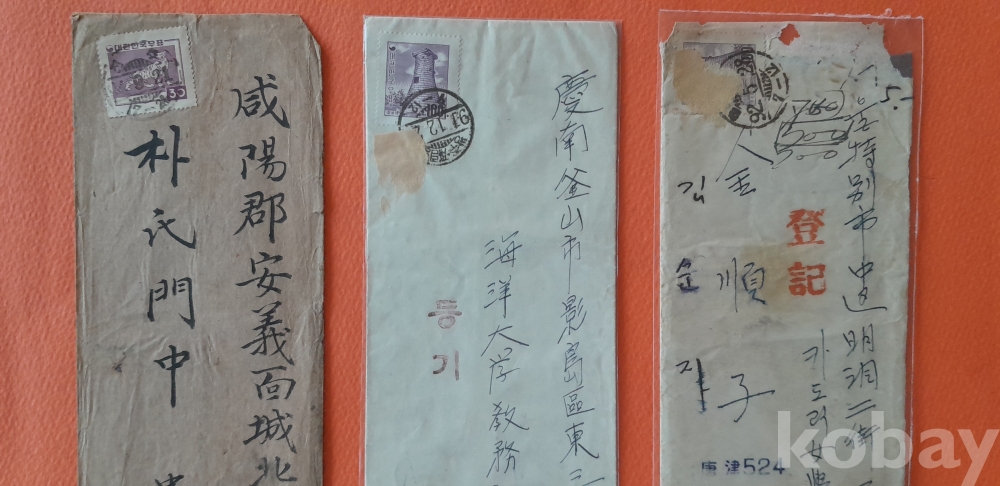 대한민국우표
咸陽郡安義面城北
朴氏門中
慶南釜山市影島區東三
海洋大学教務
등기
91.12.
92.5.
特別市中區明洞二街
카도릭女
登記
金順子
김순자
唐津524
kobay